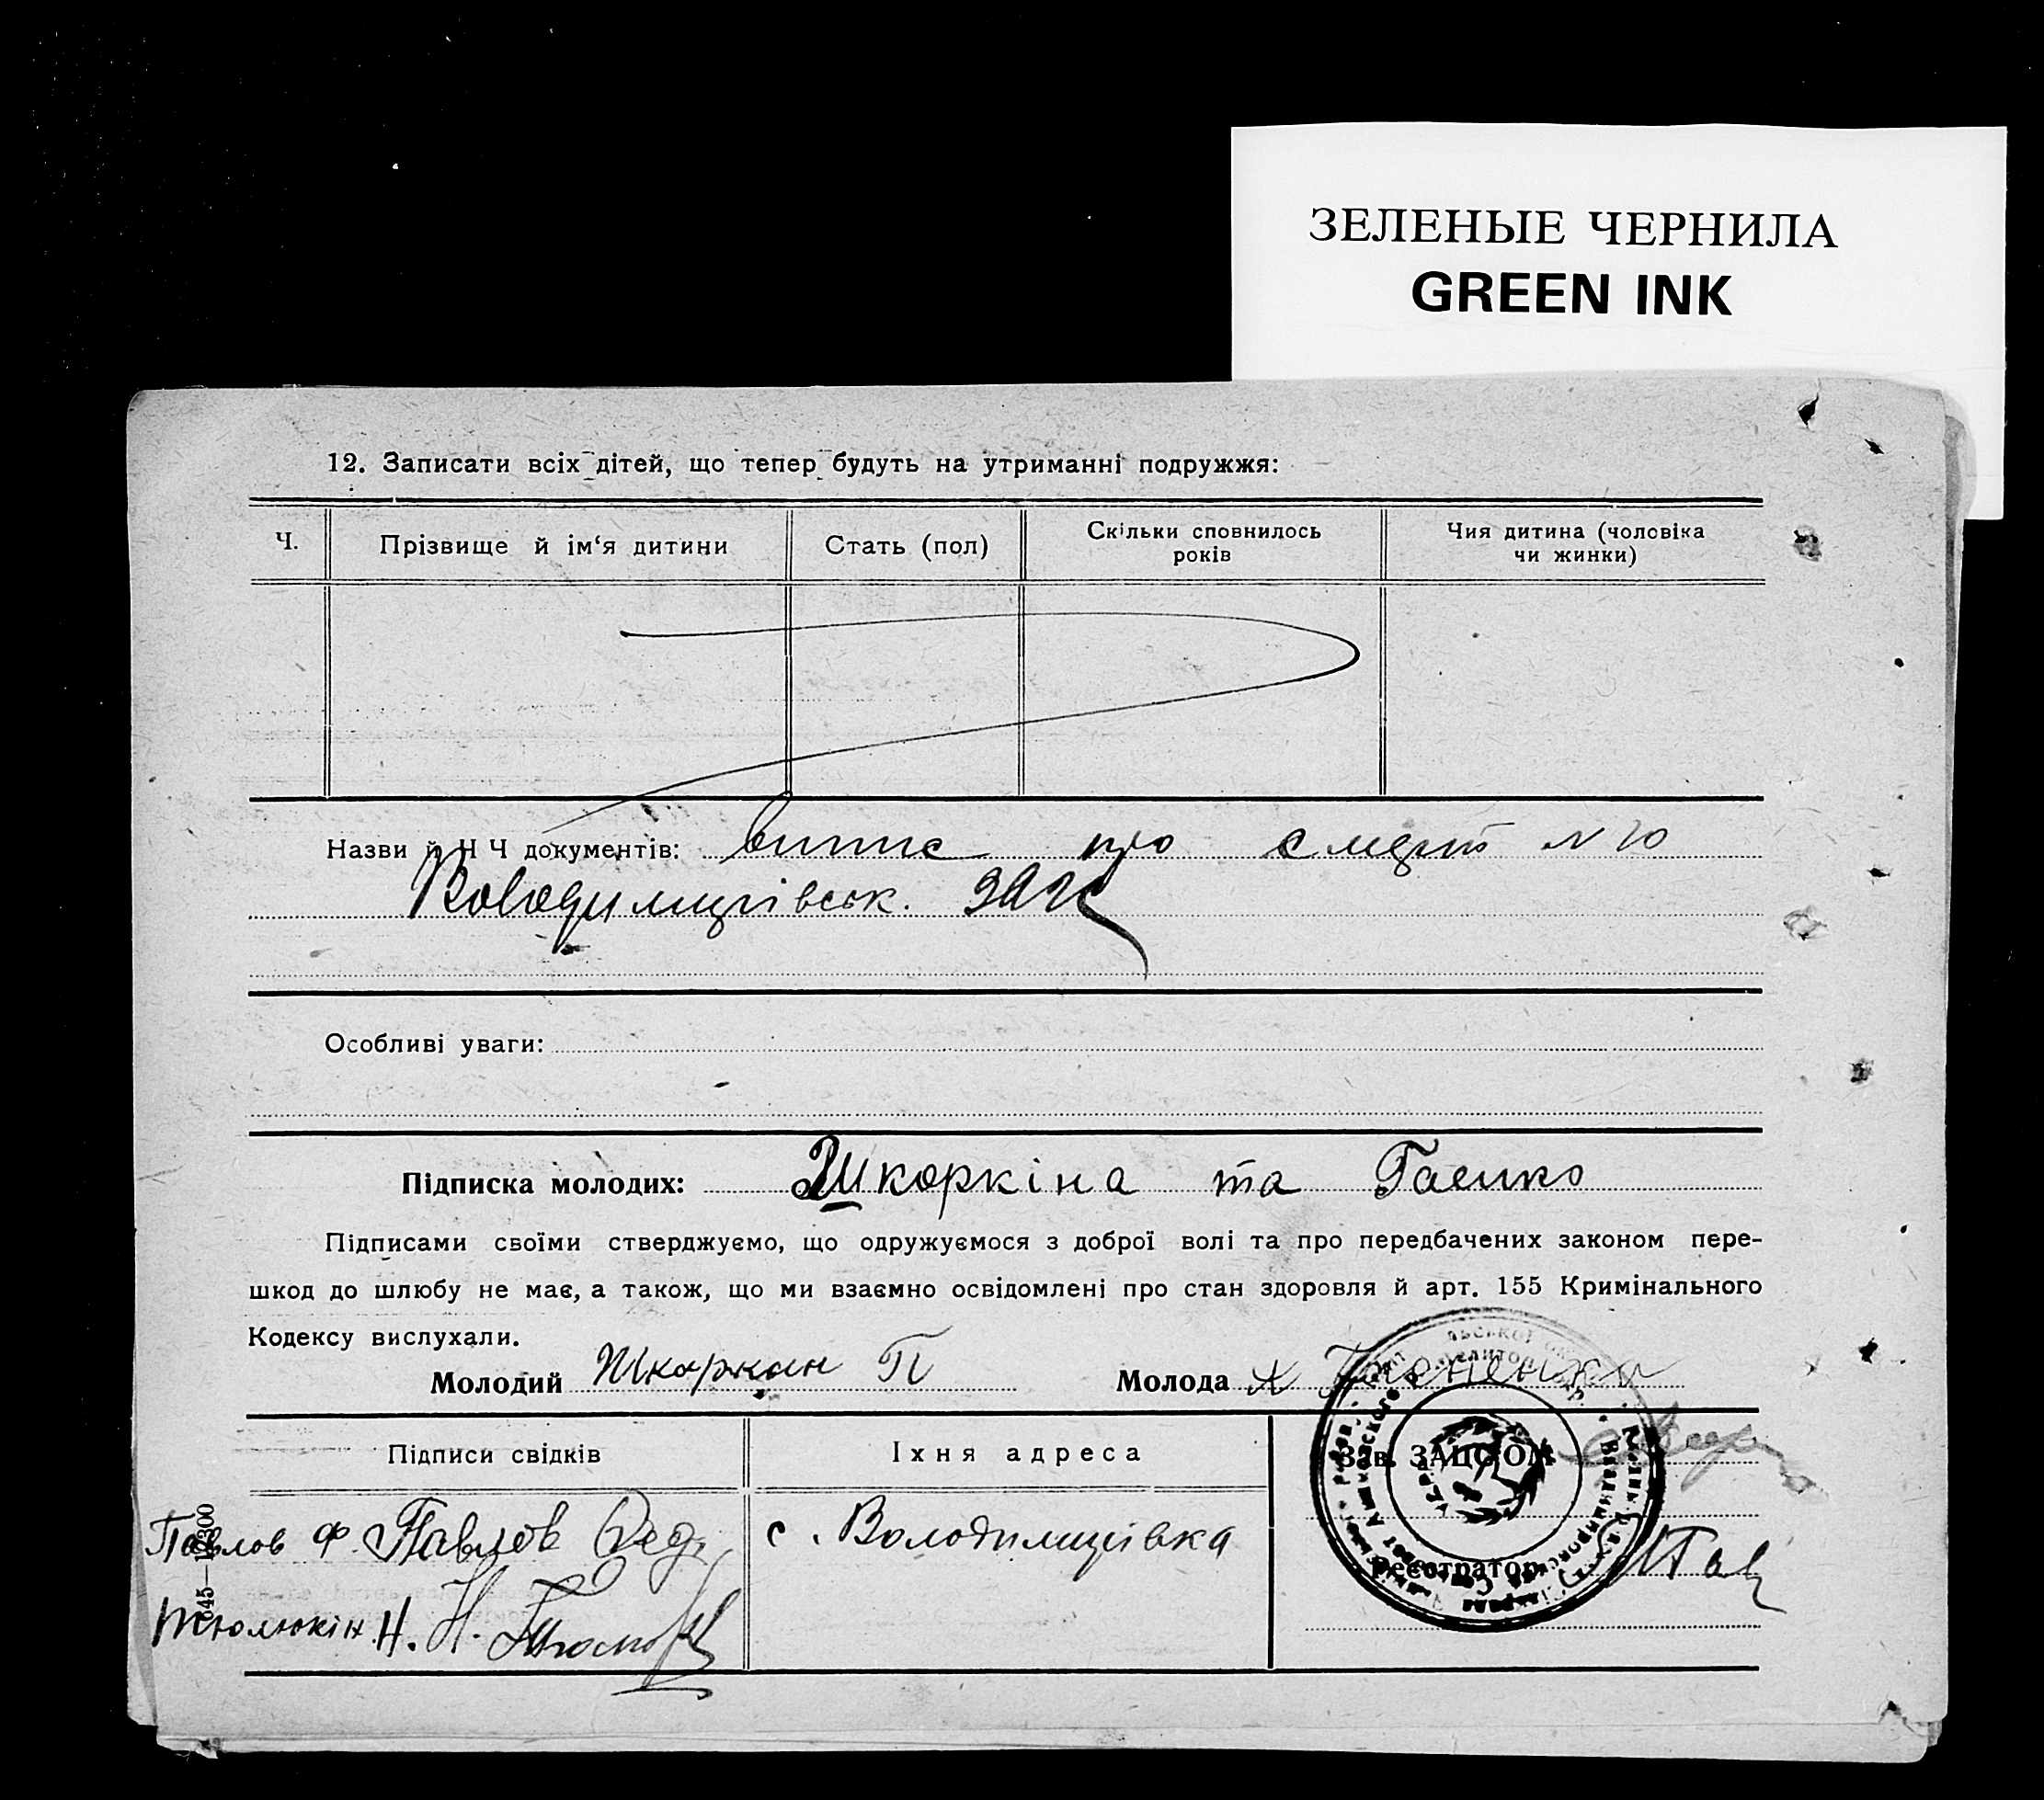 ЗЕЛЕНЫЕ ЧЕРНИЛА
GREEN INK
12. Записати всіх дітей, що тепер будуть на утриманні подружжя:
Ч.
Прізвище й ім‘я дитини
Стать (пол)
Скільки сповнилось
років
Чия дитина (чоловіка
чи жинки)
Назви й Ч Ч документів: випис про смерть N 20
Володимирівськ. ЗАГС
Особливі уваги:
Підписка молодих: Шкоркіна та Гаенко
Підписами своїми стверджуємо, що одружуємося з доброї волі та про передбачених законом пере-
шкод до шлюбу не має, а також, що ми взаємно освідомлені про стан здоровля й арт. 155 Кримінального
Кодексу вислухали.
Молодий Шкоркин П
Молода
Підписи свідків
Їхня адреса
Зав. ЗАЦСОМ
Павлов Ф. Павлов
с. Володимирівка
Реєстратор
Тюлюкін Н. Н.